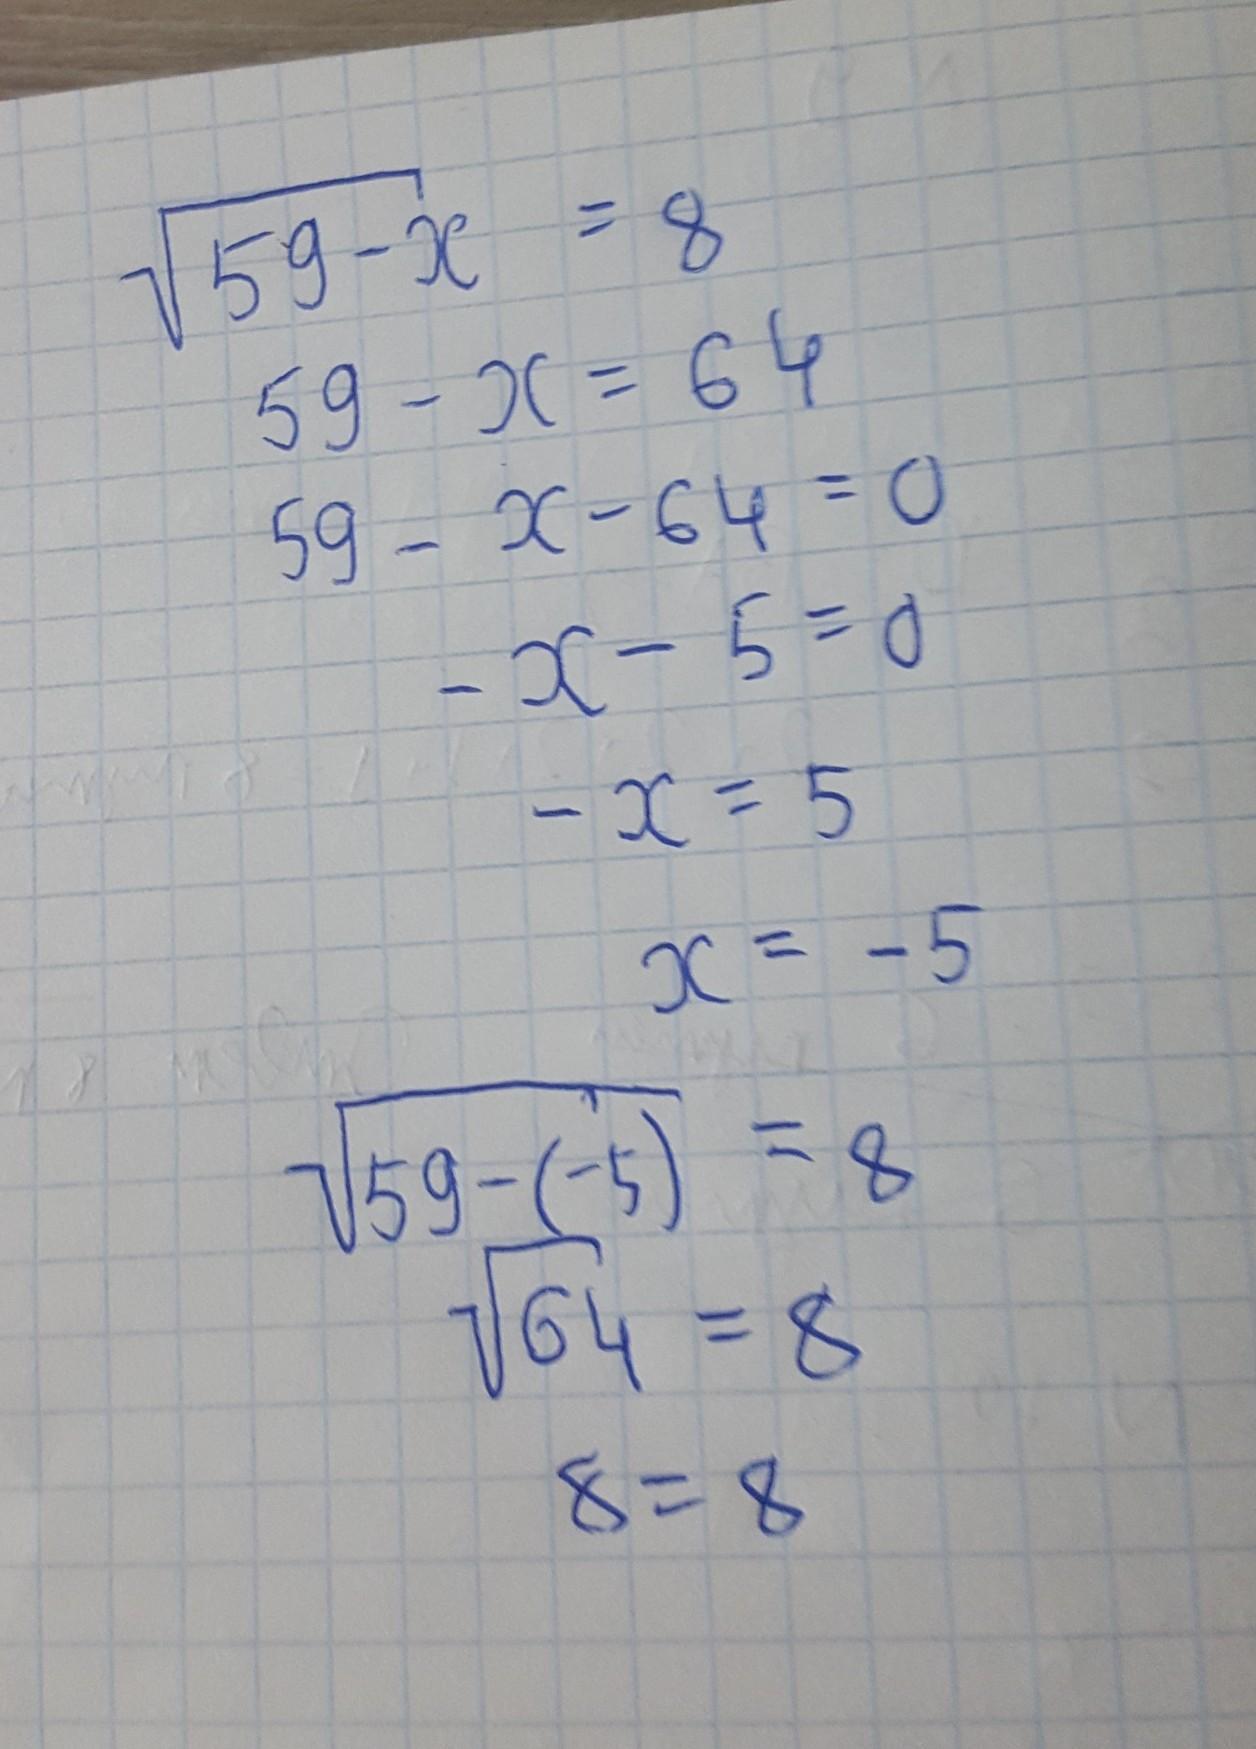 √59-x = 8
59 - x = 64
59 - x - 64 = 0
- x - 5 = 0
- x = 5
x = -5
√59-(-5) = 8
√64 = 8
8 = 8